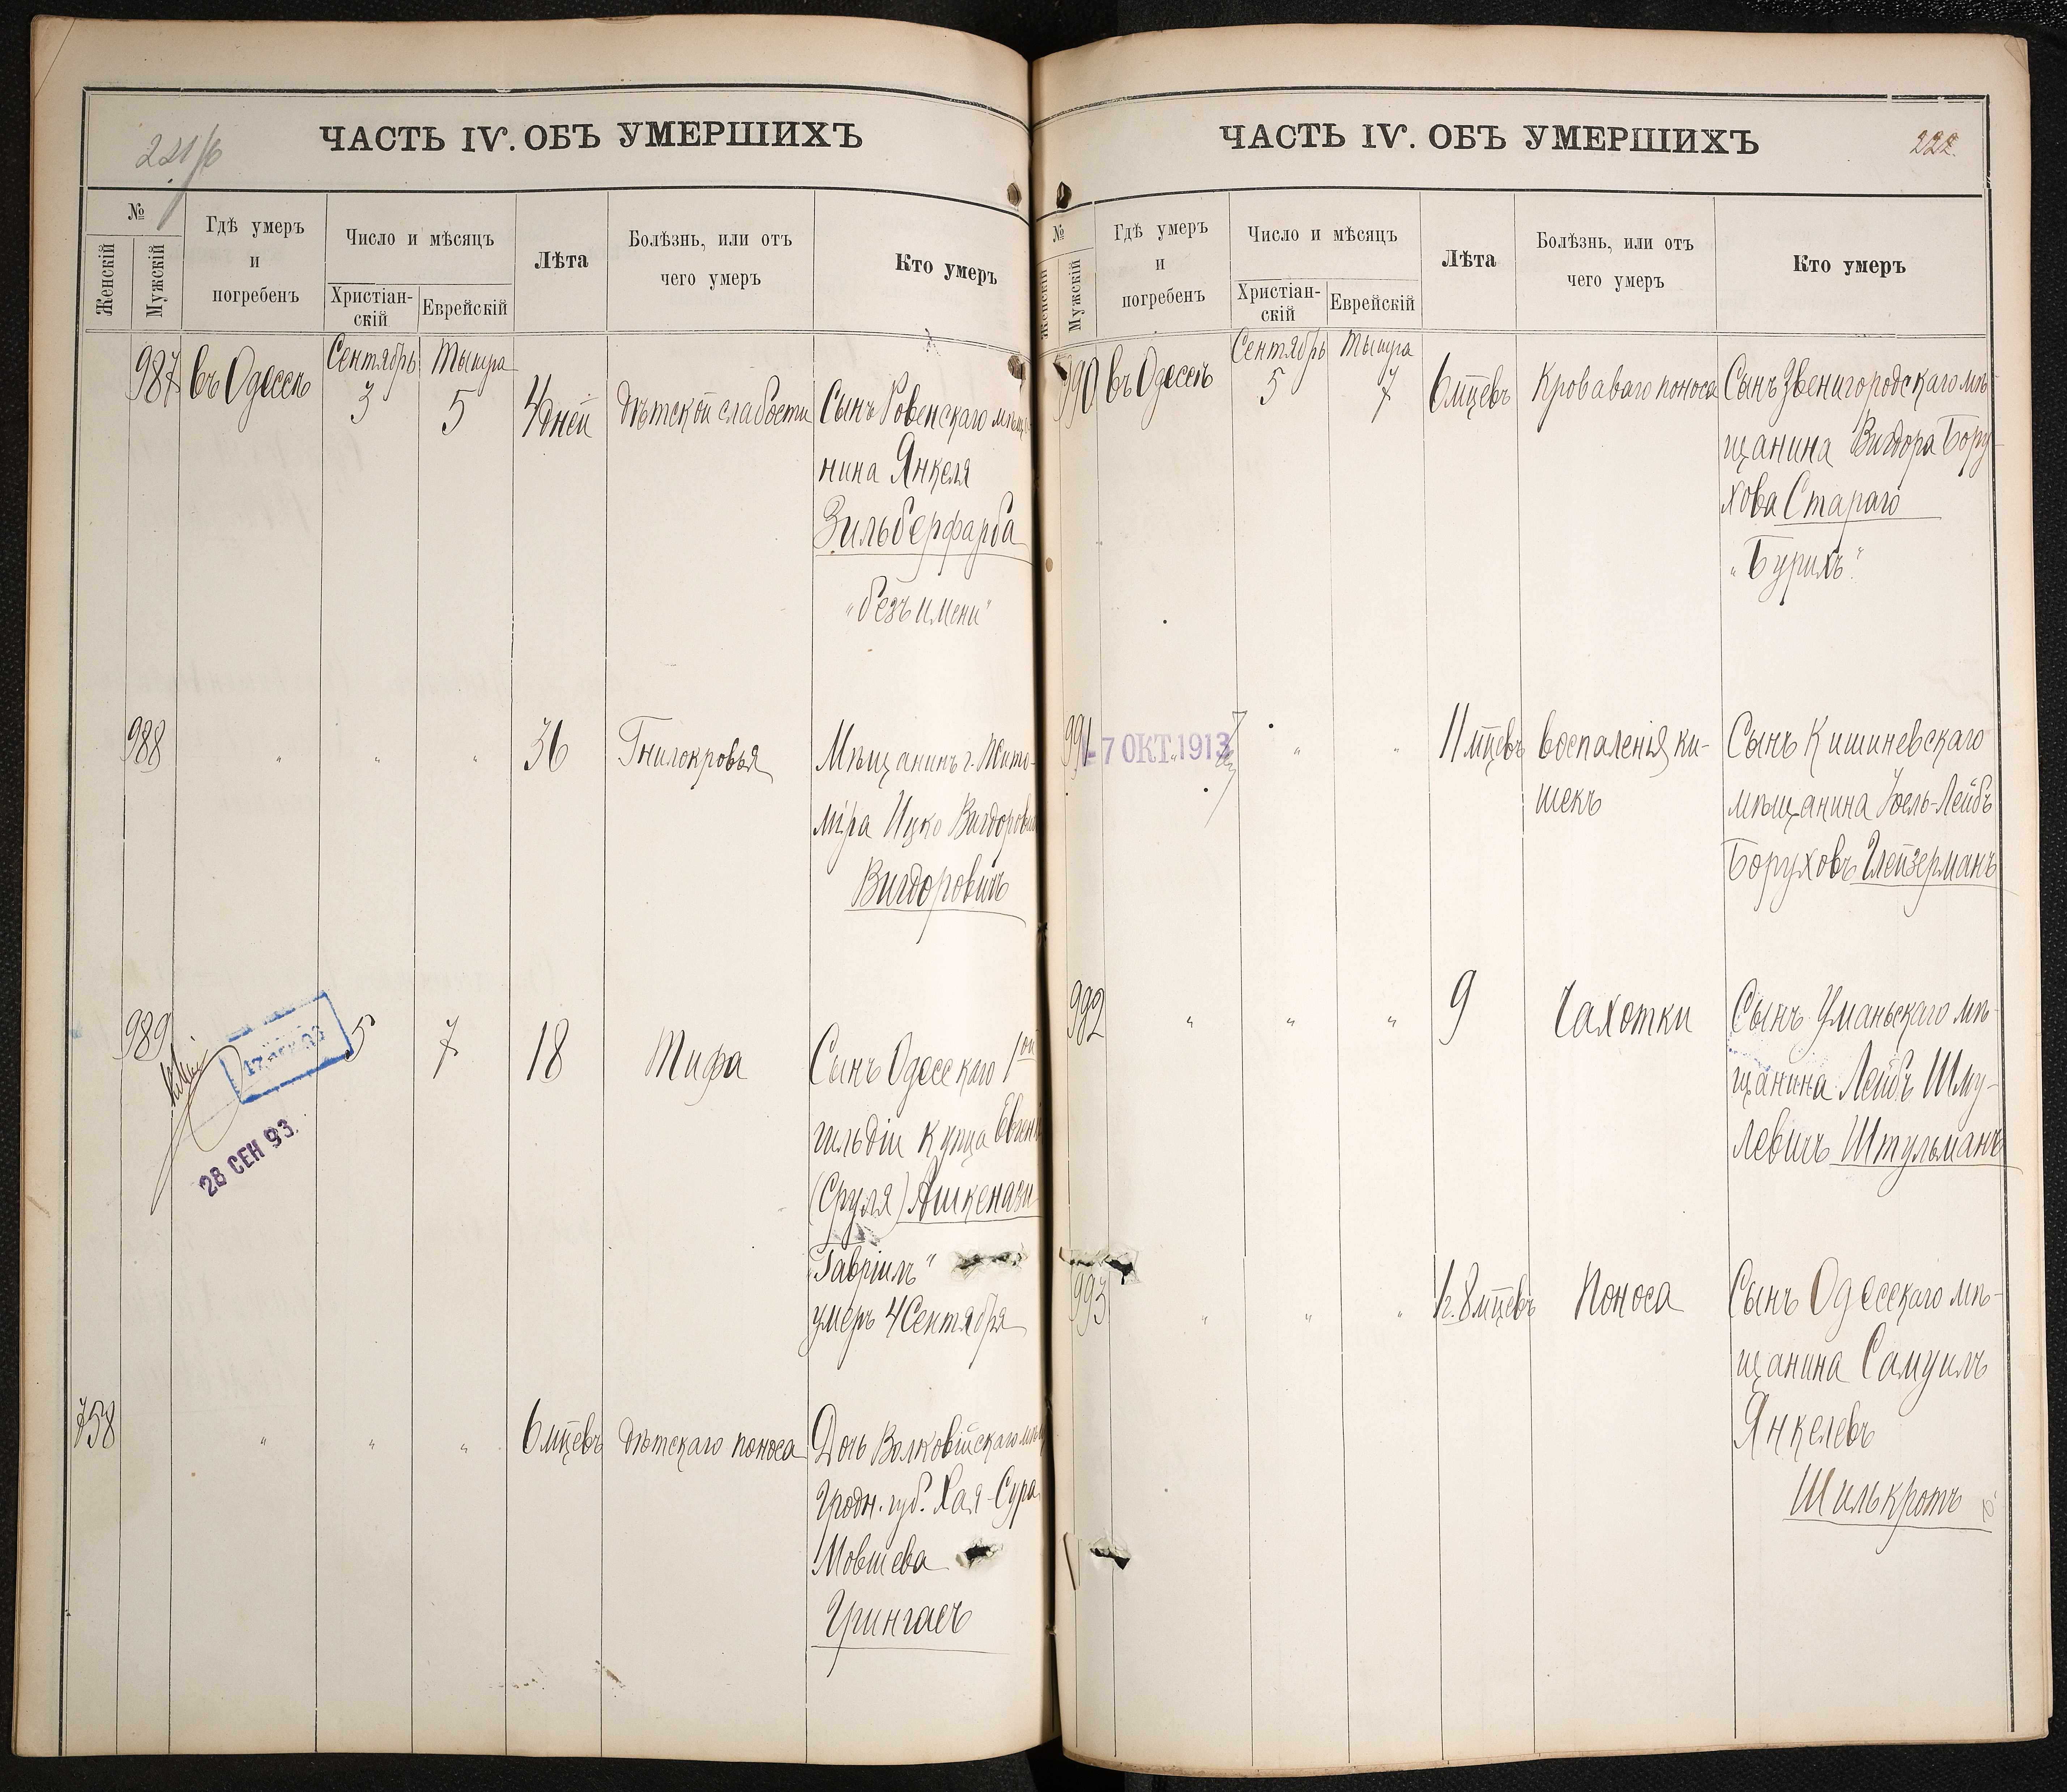 ЧАСТЬ IV. ОБЪ УМЕРШИХЪ
№
Женскій
Мужскій
Гдѣ умеръ
и
погребенъ
Число и мѣсяцъ
Христіан-
скій
Еврейскій
Лѣта
Болѣзнь, или отъ
чего умеръ
Кто умеръ
987 въ Одессѣ Сентябрь 3 Тышра 5 4 дней дѣтской слабости Сынъ Ровенскаго мѣща-
нина Янкеля
Зильберфарба
"безъ имени"
988 " " " 36 Гнилокровья Мѣщанинъ г. Жито-
міра Ицко Вигдоровъ
Вигдоровичъ
989 5 7 18 Тифа Сынъ Одесскаго 1ой
гильдіи купца
(Сруля) Ашкенази
"Гавріилъ"
умеръ 4 Сентября
28 СЕН 93.
758 " " " 6 мцевъ дѣтскаго поноса Дочь Волковійскаго мѣщ
Гродн. губ. Хая-Сура
Мовшева
Грингасъ
ЧАСТЬ IV. ОБЪ УМЕРШИХЪ
222.
№
Женскій
Мужскій
Гдѣ умеръ
и
погребенъ
Число и мѣсяцъ
Христіан-
скій
Еврейскій
Лѣта
Болѣзнь, или отъ
чего умеръ
Кто умеръ
990 въ Одессѣ Сентябрь 5 Тышра 7 6 мцевъ Кроваваго поноса Сынъ Звенигородскаго мѣ-
щанина Вигдора Бору-
хова Стараго
"Бурихъ"
991 " " " 11 мцевъ воспаленія ки- Сынъ Кишиневскаго
шекъ мѣщанина Іоель-Лейбъ
Боруховъ Глейзерманъ
-7 ОКТ.1913
992 " " " 9 Чахотки Сынъ Уманьскаго мѣ-
щанина Лейбъ Шму-
левичъ Штульманъ
993 " " " 1г. 8 мцевъ Поноса Сынъ Одесскаго мѣ-
щанина Самуилъ
Янкелевъ
Шилькротъ